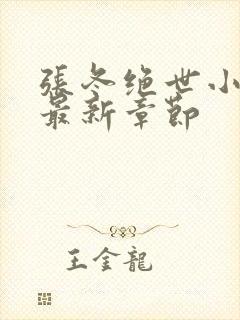 張冬绝世小
最新章節
王金龍